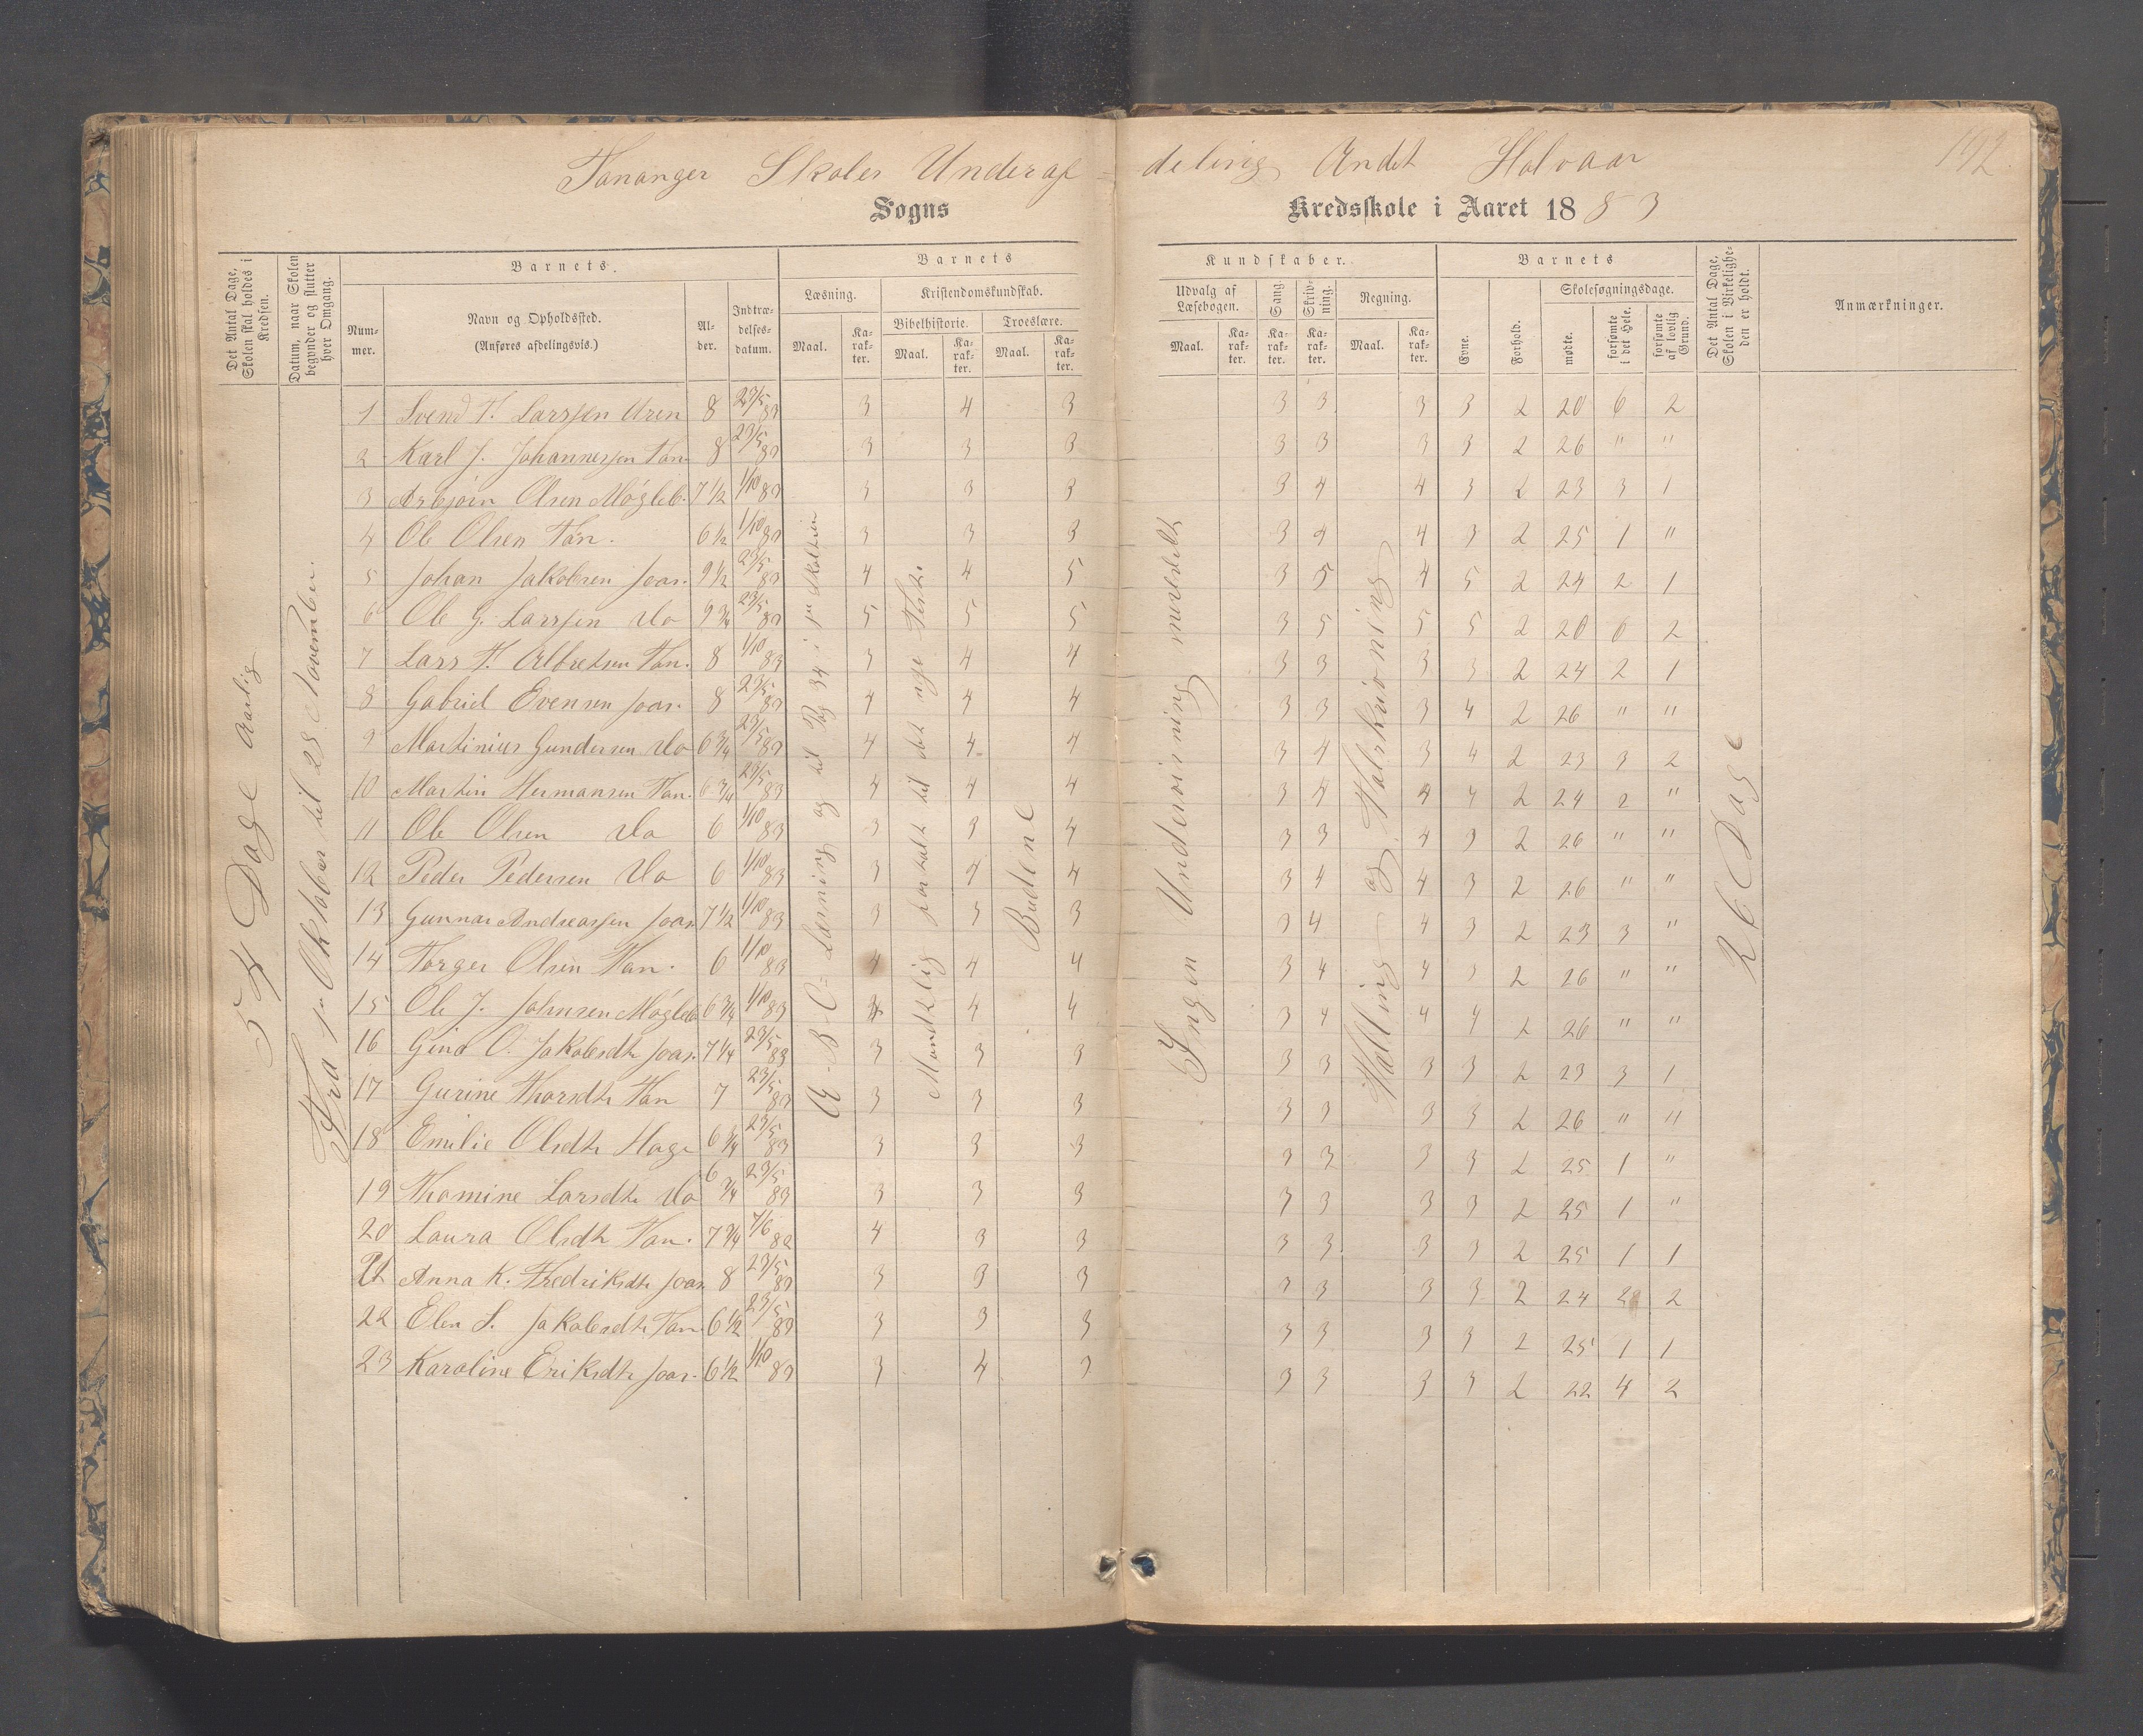 Tananger Skoles Underaf= deling Andet Halvaar 192.
Sogns Kredsskole i Aaret 1883
Det Antal Dage, Skolen skal holdes i Kredsen.
Datum, naar Skolen begynder og slutter hver Omgang.
Barnets.
Nummer.
Navn og Opholdssted.
(Anføres afdelingsvis.)
Alder.
Indtrædelsesdatum.
Barnets Kundskaber.
Læsning.
Maal.
Karakter.
Kristendomskundskab.
Bibelhistorie.
Maal.
Karakter.
Troeslære.
Maal.
Karakter.
Udvalg af Læsebogen.
Maal.
Karakter.
Sang.
Karakter.
Skrivning.
Karakter.
Regning.
Maal.
Karakter.
Barnets
Evne.
Forhold.
Skolesøgningsdage.
mødte.
forsømte i det Hele.
forsømte af lovlig Grund.
Det Antal Dage, Skolen i Virkeligheden er holdt.
Anmærkninger.
54 Dage aarlig
Fra 1ste Oktober til 28 November.
A-B-C= Læsning og til Pag 34 i
Mundtlig fortalt til det nye Testa
Budene
Ingen Undervisning meddelt
Tælling og Talskrivning
26 Dage
1 Svend T. Larssen Uren 8 23/5 83 3 4 3 3 3 3 3 2 20 6 2
2 Karl J. Johannessen Tan. 8 23/5 83 3 3 3 3 3 3 3 2 26 " "
3 Asbjørn Olsen Mögleb. 7 1/2 1/10 83 3 3 3 3 4 4 3 2 23 3 1
4 Ole Olsen Tan. 6 1/2 1/10 83 3 3 3 3 4 4 3 2 25 1 "
5 Johan Jakobsen Joas. 9 1/2 23/5 83 4 4 5 3 5 4 5 2 24 2 1
6 Ole G. Larssen Do 9 3/4 23/5 83 5 5 5 3 5 5 5 2 20 6 2
7 Lars T. Albretsen Tan. 8 1/10 83 3 4 4 3 3 3 3 2 24 2 1
8 Gabriel Evensen Joas. 8 23/5 83 4 4 4 3 3 3 4 2 26 " "
9 Martinius Gundersen Do 6 3/4 23/5 83 4 4 4 3 4 3 4 2 23 3 2
10 Martin Hermansen Tan. 6 3/4 23/5 83 4 4 4 3 4 4 4 2 24 2 "
11 Ole Olsen Do 6 1/10 83 3 3 4 3 3 4 3 2 26 " "
12 Peder Pedersen Do 6 1/10 83 3 4 4 3 4 4 3 2 26 " "
13 Gunnar Andreassen Joas. 7 1/2 1/10 83 3 3 3 3 4 4 3 2 23 3 "
14 Torger Olsen Tan. 6 1/10 83 4 4 4 3 4 4 3 2 26 " "
15 Ole J. Johnsen Mögleb 6 3/4 1/10 83 4 4 4 3 4 4 4 2 26 " "
16 Gina O. Jakobsdtr Joas. 7 1/4 23/5 83 3 3 3 3 3 3 3 2 23 3 1
17 Gurine Thorsdtr Tan 7 23/5 83 3 3 3 3 3 3 3 2 26 " "
18 Emilie Olsdtr Haga 6 3/4 23/5 83 3 3 3 3 3 3 3 2 25 1 "
19 Thomine Larsdtr Do 6 3/4 23/5 83 3 3 3 3 3 3 3 2 25 1 "
20 Laura Olsdtr Tan. 7 3/4 7/6 82 4 3 3 3 3 3 3 2 25 1 1
21 Anna K. Fredriksdtr Joas. 8 23/5 83 3 3 3 3 3 3 3 2 24 2 2
22 Elen S. Jakobsdtr Tan. 6 1/2 23/5 83 3 3 3 3 3 3 3 2 25 1 1
23 Karoline Eriksdtr Joas. 6 1/2 1/10 83 3 4 3 3 3 3 3 2 22 4 2